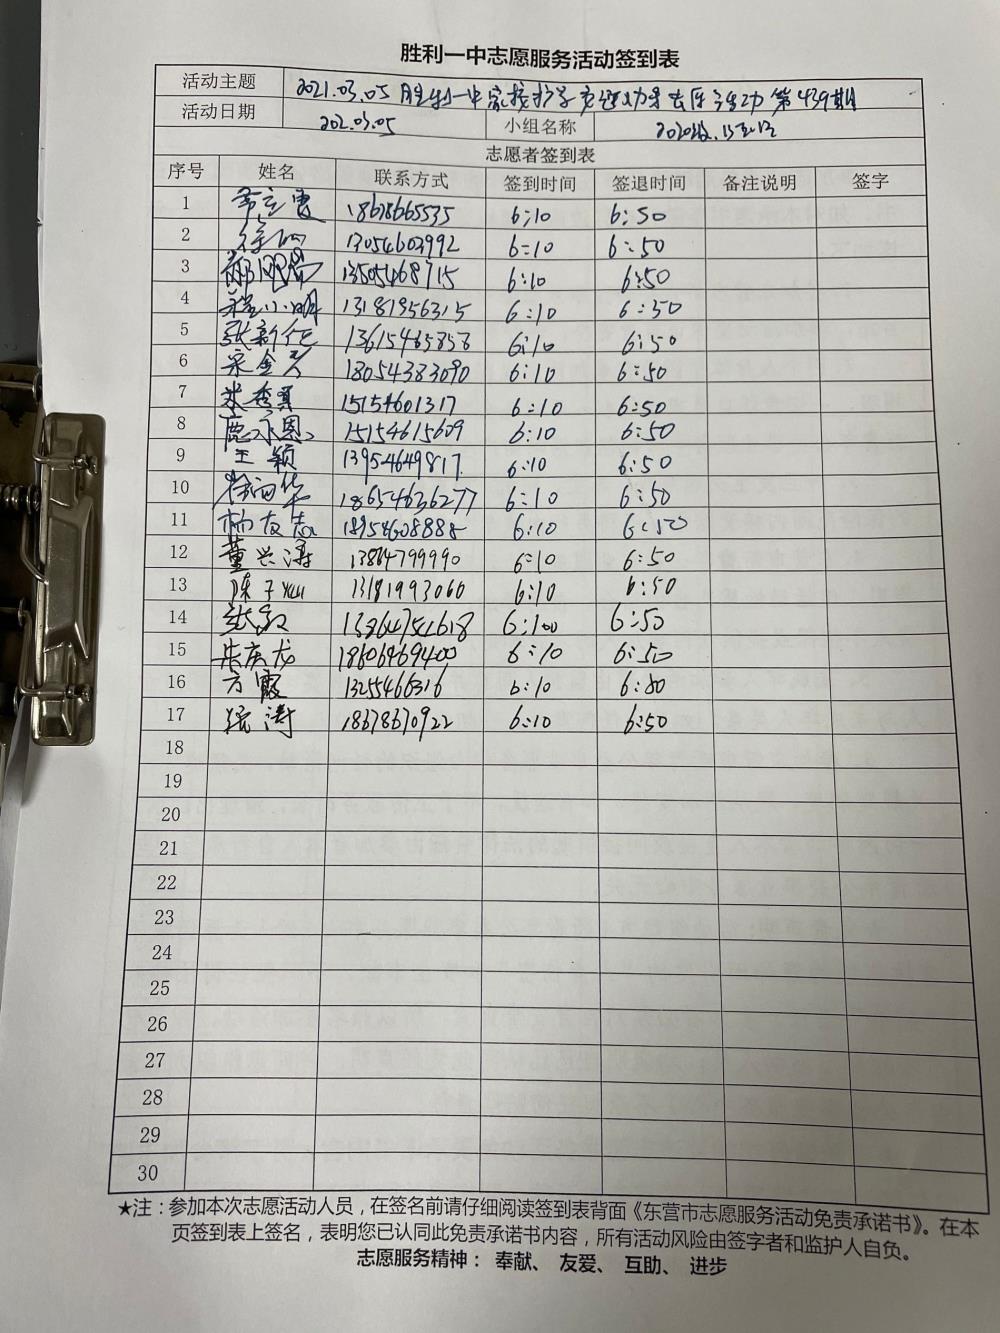 胜利一中志愿服务活动签到表
活动主题 2021.03.05 胜利一中家校 活动 第439期
活动日期 202.03.05 小组名称 2020级
志愿者签到表
序号 姓名 联系方式 签到时间 签退时间 备注说明 签字
1 18678665535 6:10 6:50
2 13054603992 6:10 6:50
3 13505468715 6:10 6:50
4 程小明 13181956315 6:10 6:50
5 张新 13615465858 6:10 6:50
6 宋金 18054383090 6:10 6:50
7 秀 15154601317 6:10 6:50
8 鹿永恩 15154615609 6:10 6:50
9 王颖 13954649817 6:10 6:50
10 18654636277 6:10 6:50
11 杨友志 18954608888 6:10 6:50
12 董兴涛 13864799990 6:10 6:50
13 陈子 13181993060 6:10 6:50
14 13864751618 6:10 6:50
15 庆龙 18606469400 6:10 6:50
16 方霞 13255466316 6:10 6:80
17 张涛 18678670922 6:10 6:50
18
19
20
21
22
23
24
25
26
27
28
29
30
★注：参加本次志愿活动人员，在签名前请仔细阅读签到表背面《东营市志愿服务活动免责承诺书》。在本
页签到表上签名，表明您已认同此免责承诺书内容，所有活动风险由签字者和监护人自负。
志愿服务精神： 奉献、 友爱、 互助、 进步